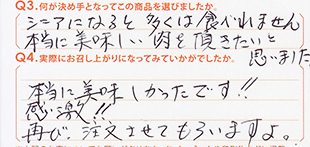 Q3.何が決め手となってこの商品を選びましたか。
シニアになると多くは食べれません
本当に美味しい肉を頂きたいと
思いました
Q4.実際にお召し上がりになってみていかがでしたか。
本当に美味しかったです!!
感激!!!
再び、注文させてもらいますよ。